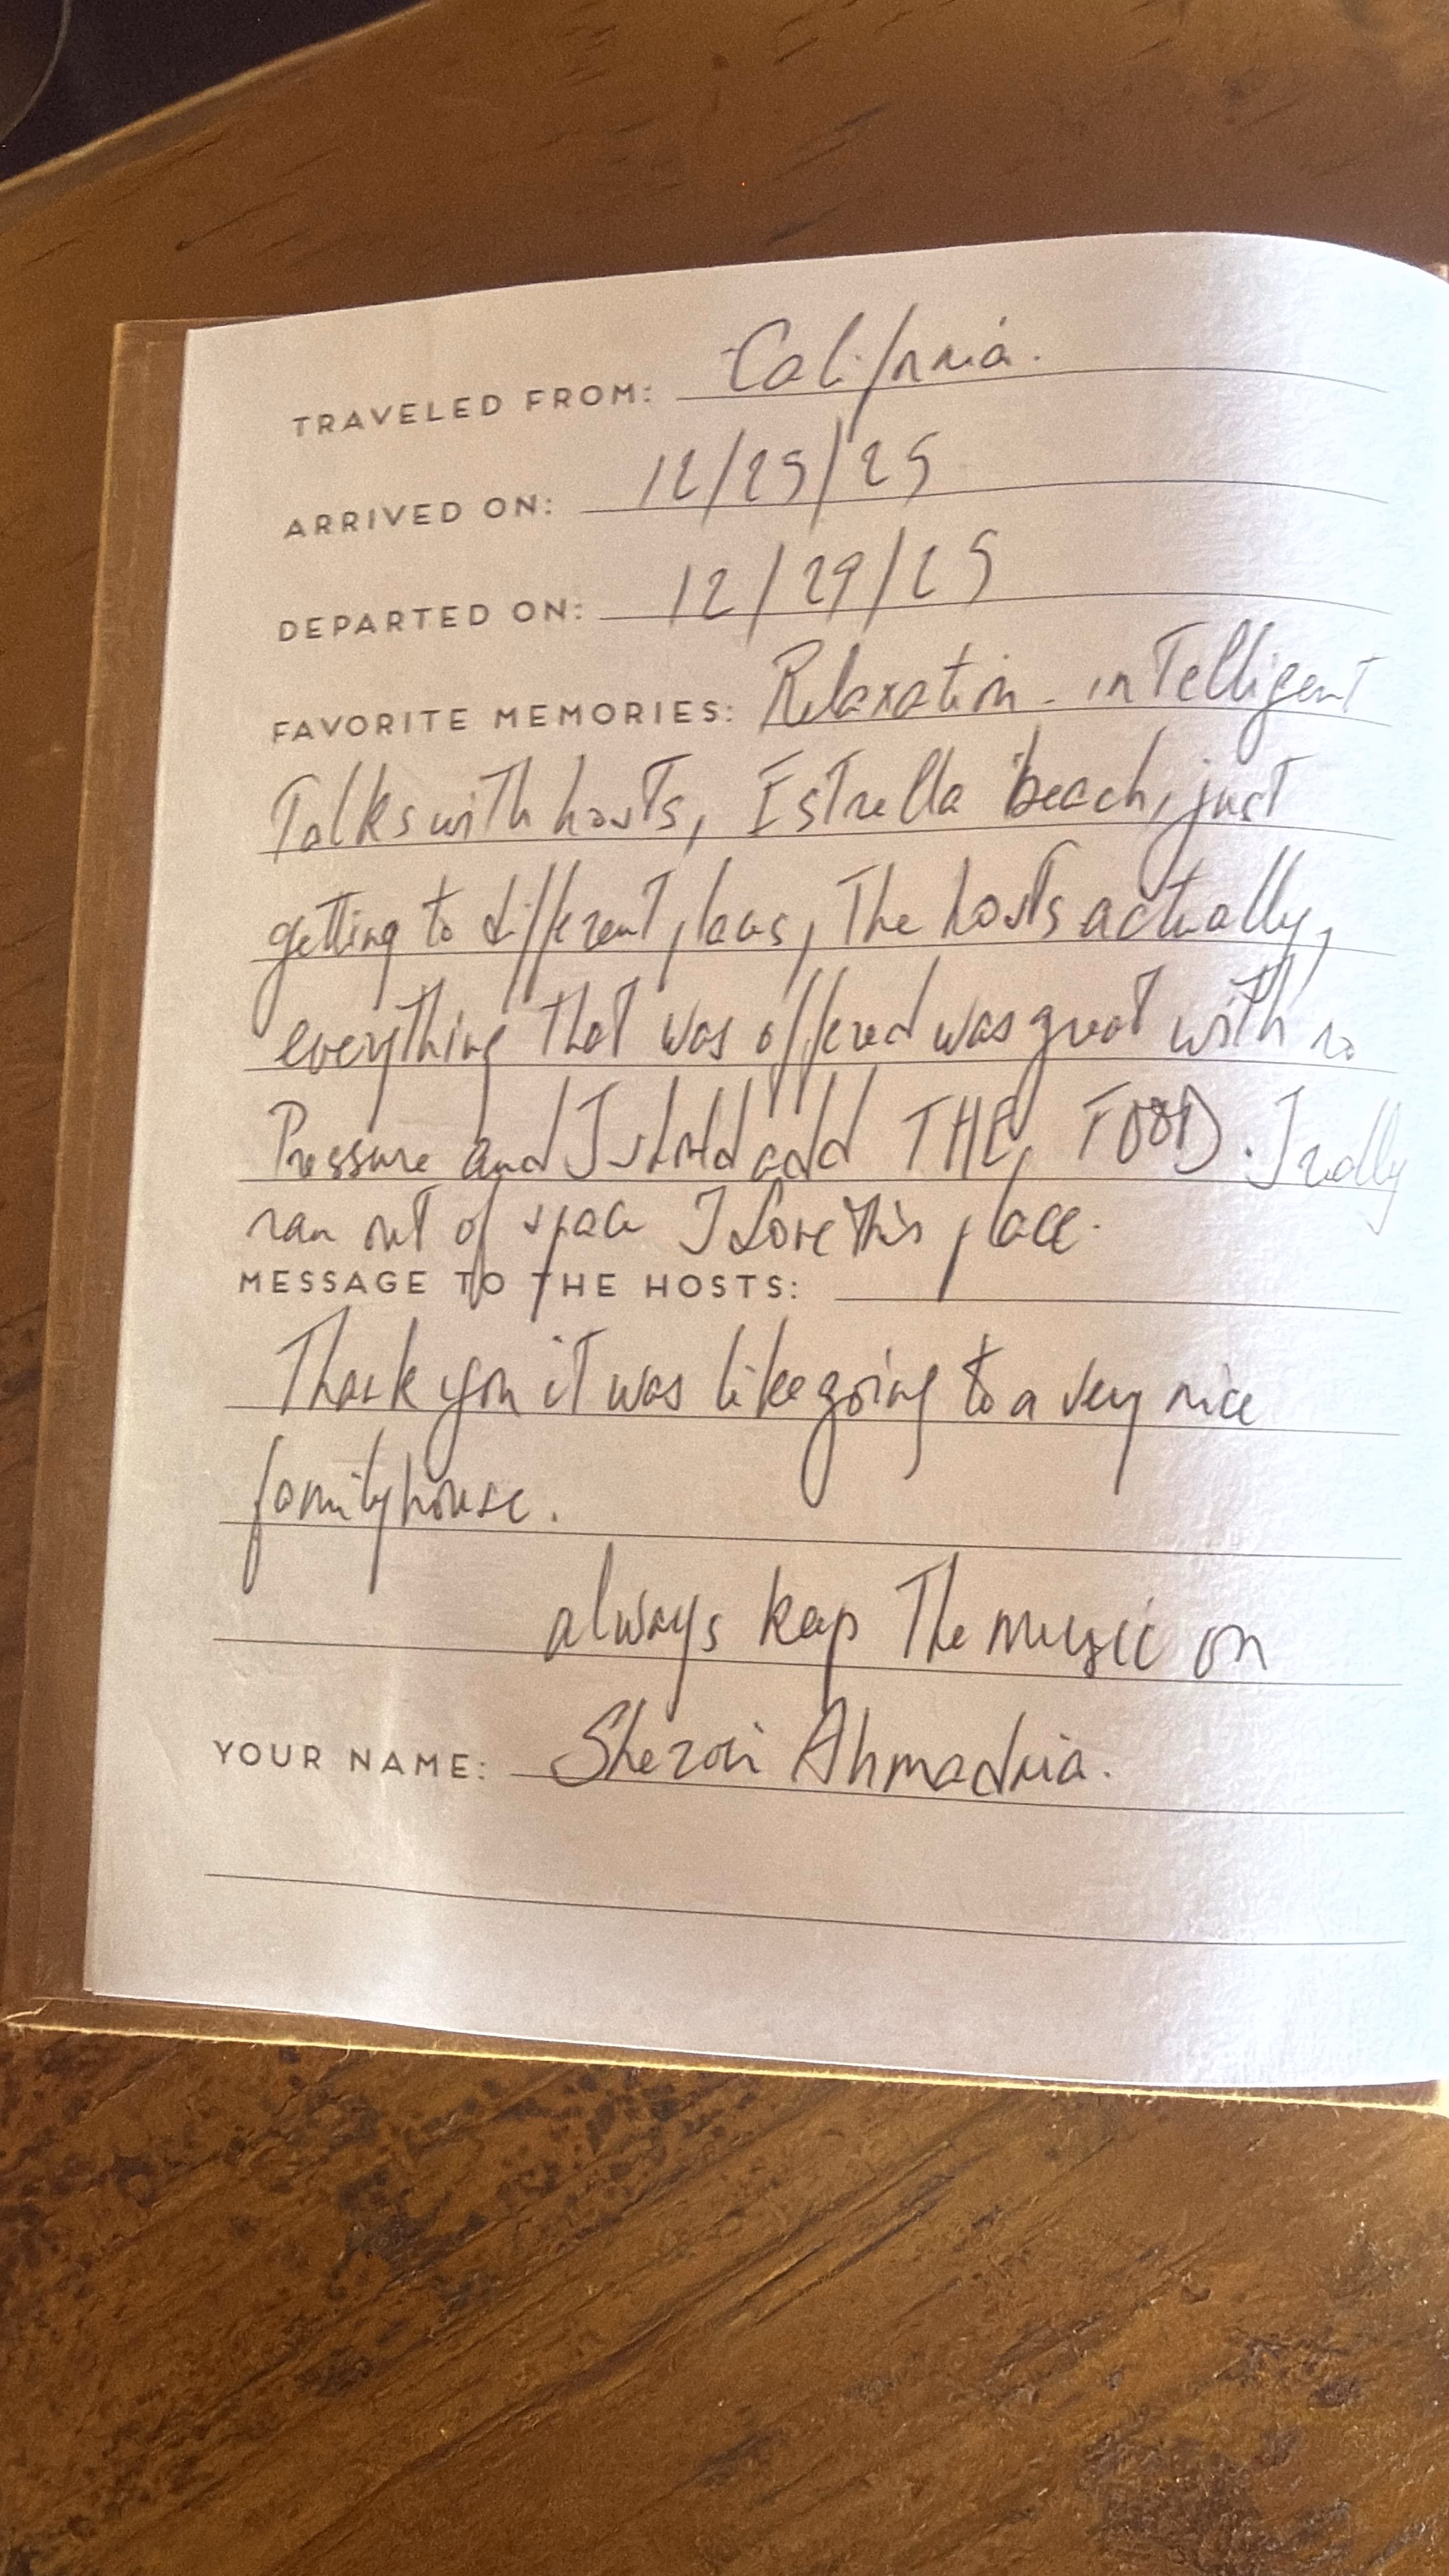 TRAVELED FROM: California.
ARRIVED ON: 12/25/25
DEPARTED ON: 12/29/25
FAVORITE MEMORIES: Relaxation - inTelligent
Talks with hosts, Estrella beach, just
getting to different places, The hosts actually,
everything that was offered was great with no
Pressure and I should add THE FOOD. I really
ran out of space I Love this place.
MESSAGE TO THE HOSTS:
Thank you it was like going to a very nice
family house.
always keep The music on
YOUR NAME: Ahmadnia.